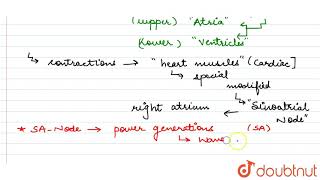 (upper) "Atria"
(Lower) "Ventricles"
↳ contractions → "heart muscles" (cardiac]
↳ special modified
right atrium ← "Sinoatrial Node"
* SA-Node → power generations (SA)
↳ wave
doubtnut